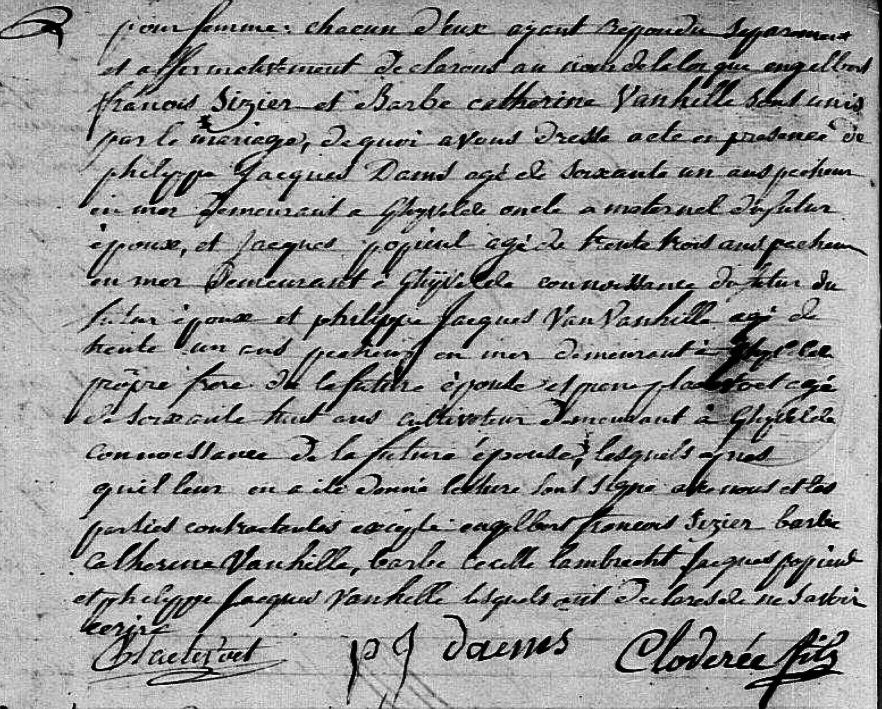 pour femme; chacun d'eux ayant Repondu Separement
et affermativement Declarons au nom de la loi que engelbert
francois Sizier et Barbe catherine Vanhille sont unis
par le mariage, de quoi avons dressé acte en presence de
philippe Jacques Dams agé de soixante un ans pecheur
en mer demeurant a Ghyvelde oncle a maternel du futur
époux, et Jacques popieul agé de trente trois ans pecheur
en mer Demeurant à Ghÿvelde connoissance du futur du
futur époux et philippe Jacques Van Vanhille agé de
trente un ans pecheur en mer demeurant à Ghyvelde
propre frere de la future épouse et pierre plaetevoet agé
de soixante huit ans cultivateur demeurant à Ghyvelde
connoissance de la future épouse, lesquels apres
qu'il leur en a été donné lecture sont signé avec nous et les
parties contractantes excepté engelbert francois Sizier barbe
catherine Vanhille, barbe cecille lambrecht Jacques popieul
et philippe Jacques Vanhille lesquels ont declarés de ne savoir
ecrire
Plaetevoet p J Daems Cloderée fils